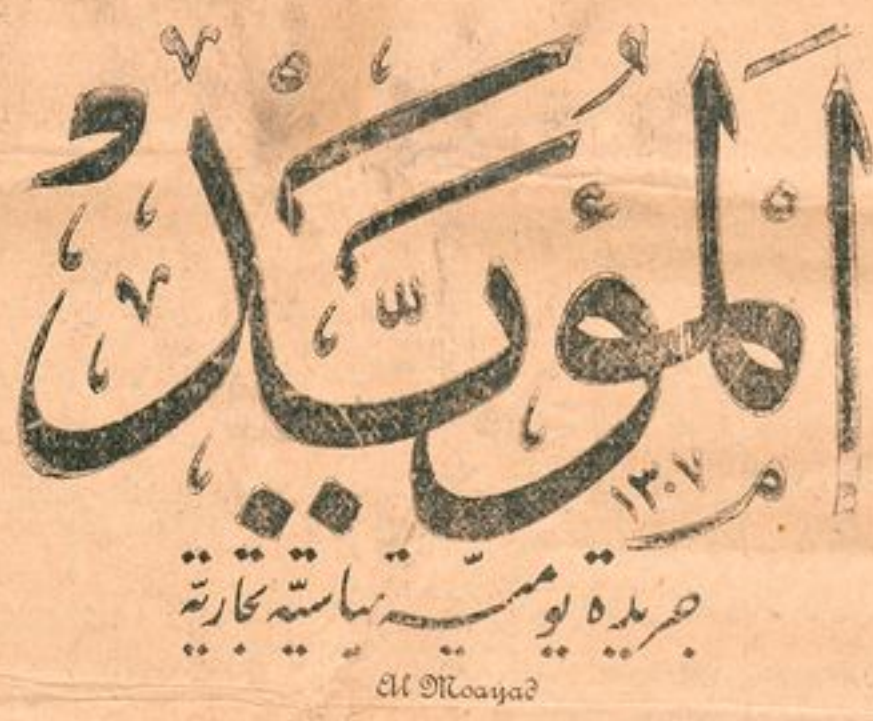 المؤيّد
١٣٠٧
جريدة يومية سياسيّة تجاريّة
Al Moayad